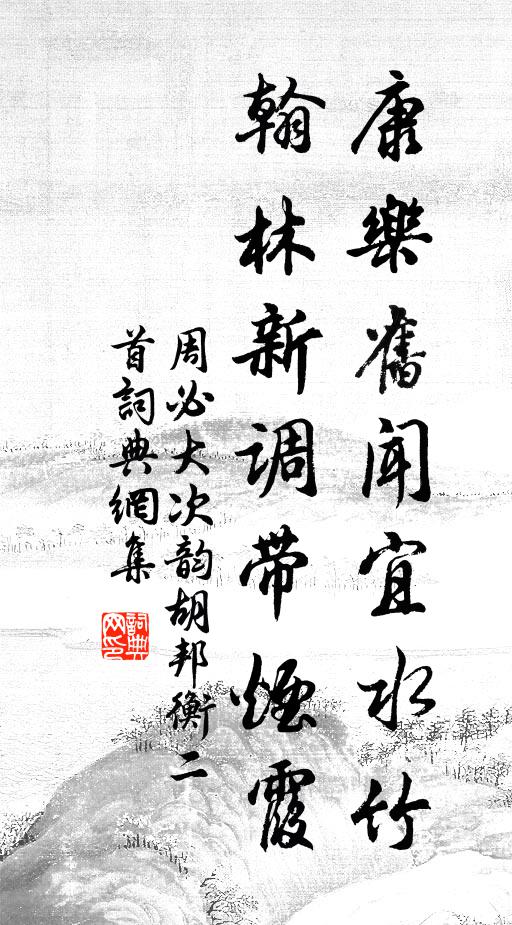 康樂舊聞宜水竹
翰林新調带煙霞
周必大次韵胡邦衡二
首詞典網集
詞典网印